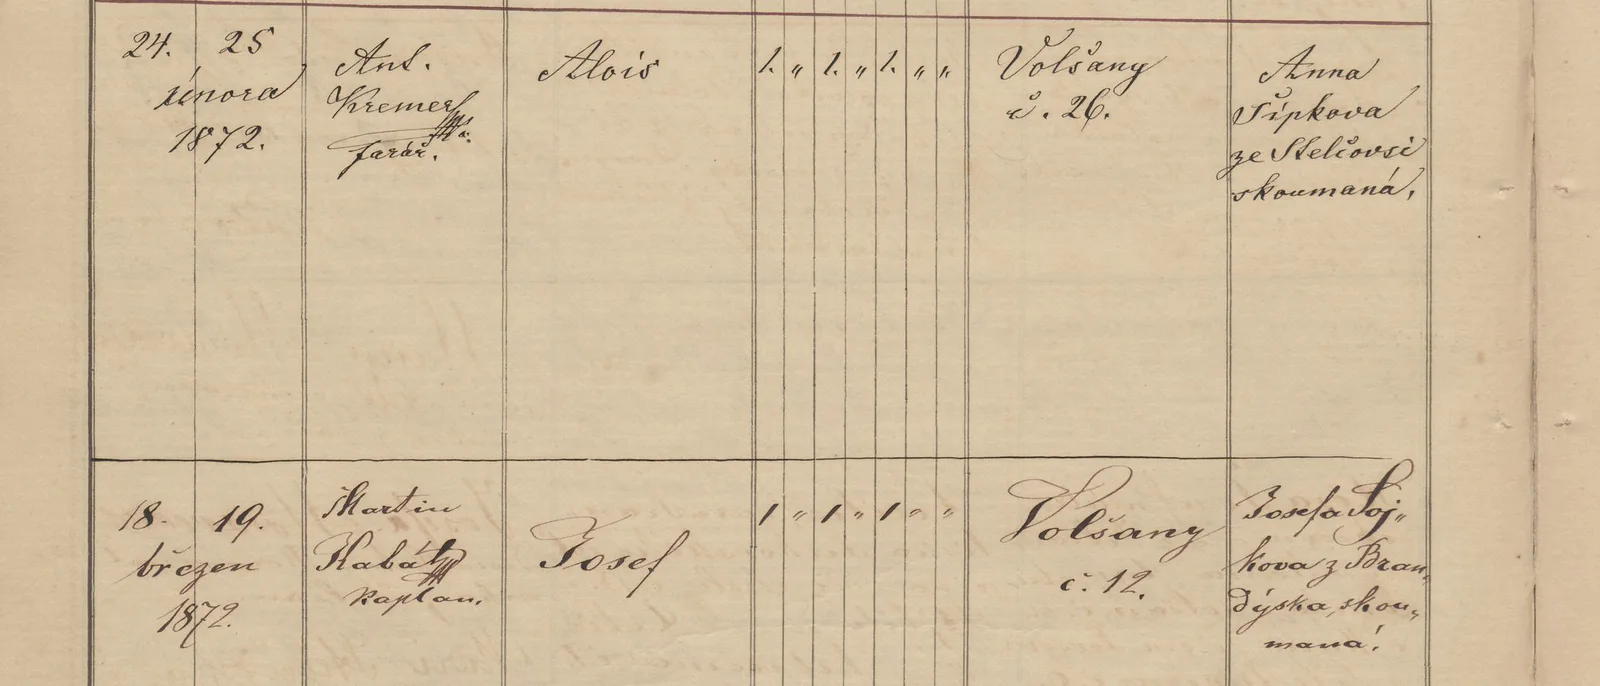 24. 25
února
1872.
Ant.
Kremer
farář.
Alois
1. „ 1. „ 1. „ „
Volšany
č. 26.
Anna
Šípkova
ze Stelčovsi
skoumaná.
18. 19.
březen
1872.
Martin
Kabát
kaplan.
Josef
1 „ 1 „ 1 „ „
Volšany
č. 12.
Josefa Soj„
kova z Bran„
dýska, skou„
maná.